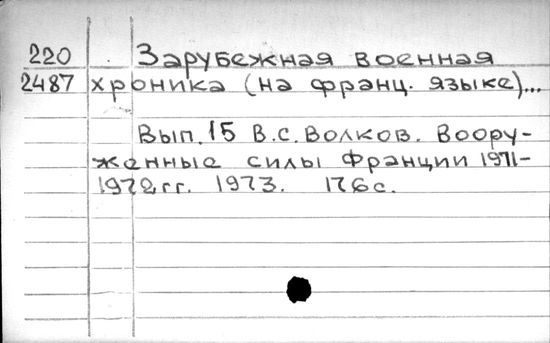 220 Зарубежная военная
2487 хроника (на франц. языке)...
Вып. 15 В.С. Волков. Воору-
женные силы Франции 1971-
1972 гг. 1973. 176 с.